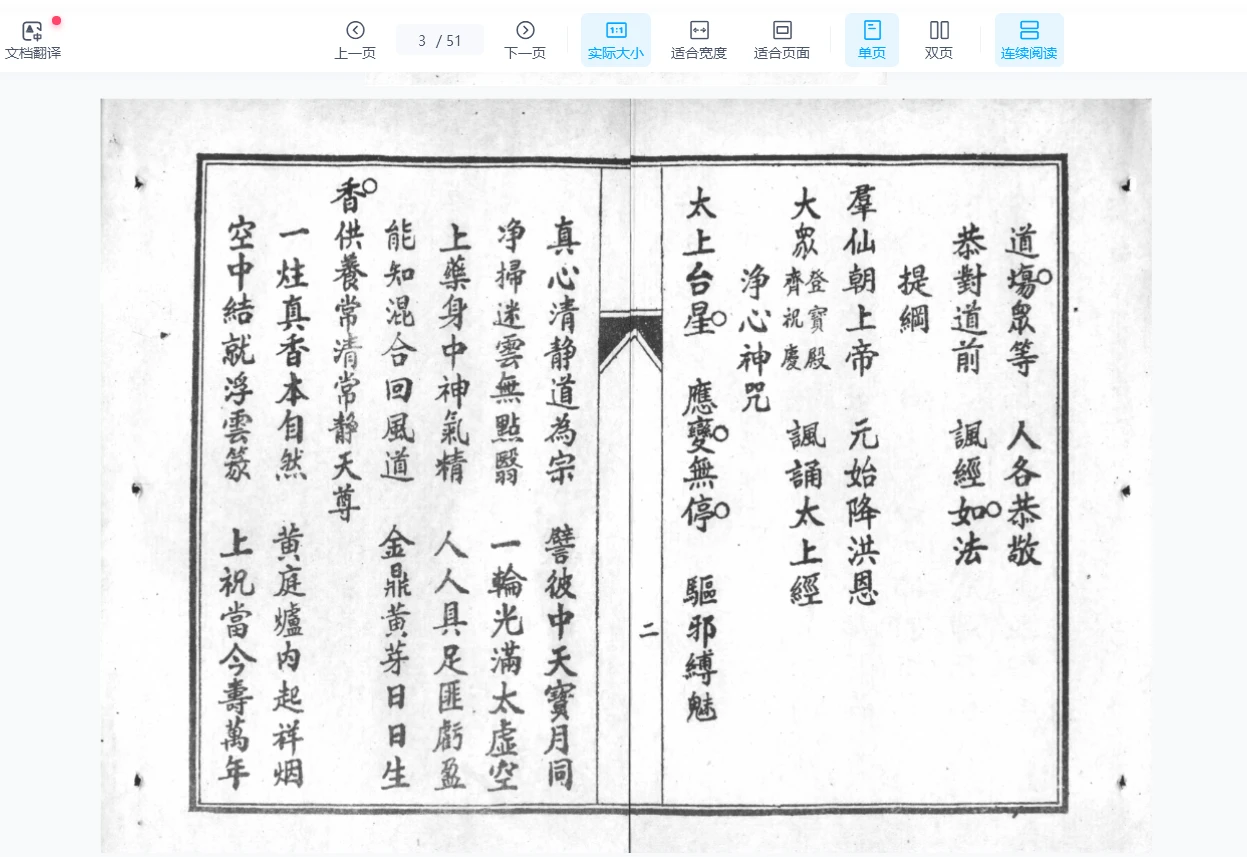 文档翻译
上一页
3 / 51
下一页
1:1
实际大小
适合宽度
适合页面
单页
双页
连续阅读
道塲眾等 人各恭敬
恭對道前 諷經如法
提綱
羣仙朝上帝 元始降洪恩
大眾登寶殿齊祝慶 諷誦太上經
淨心神咒
太上台星 應變無停 驅邪縛魅
二
真心清靜道為宗 譬彼中天寶月同
净掃迷雲無點翳 一輪光滿太虛空
上藥身中神氣精 人人具足匪虧盈
能知混合回風道 金鼎黃芽日日生
香供養常清常靜天尊
一炷真香本自然 黃庭爐內起祥烟
空中結就浮雲篆 上祝當今壽萬年